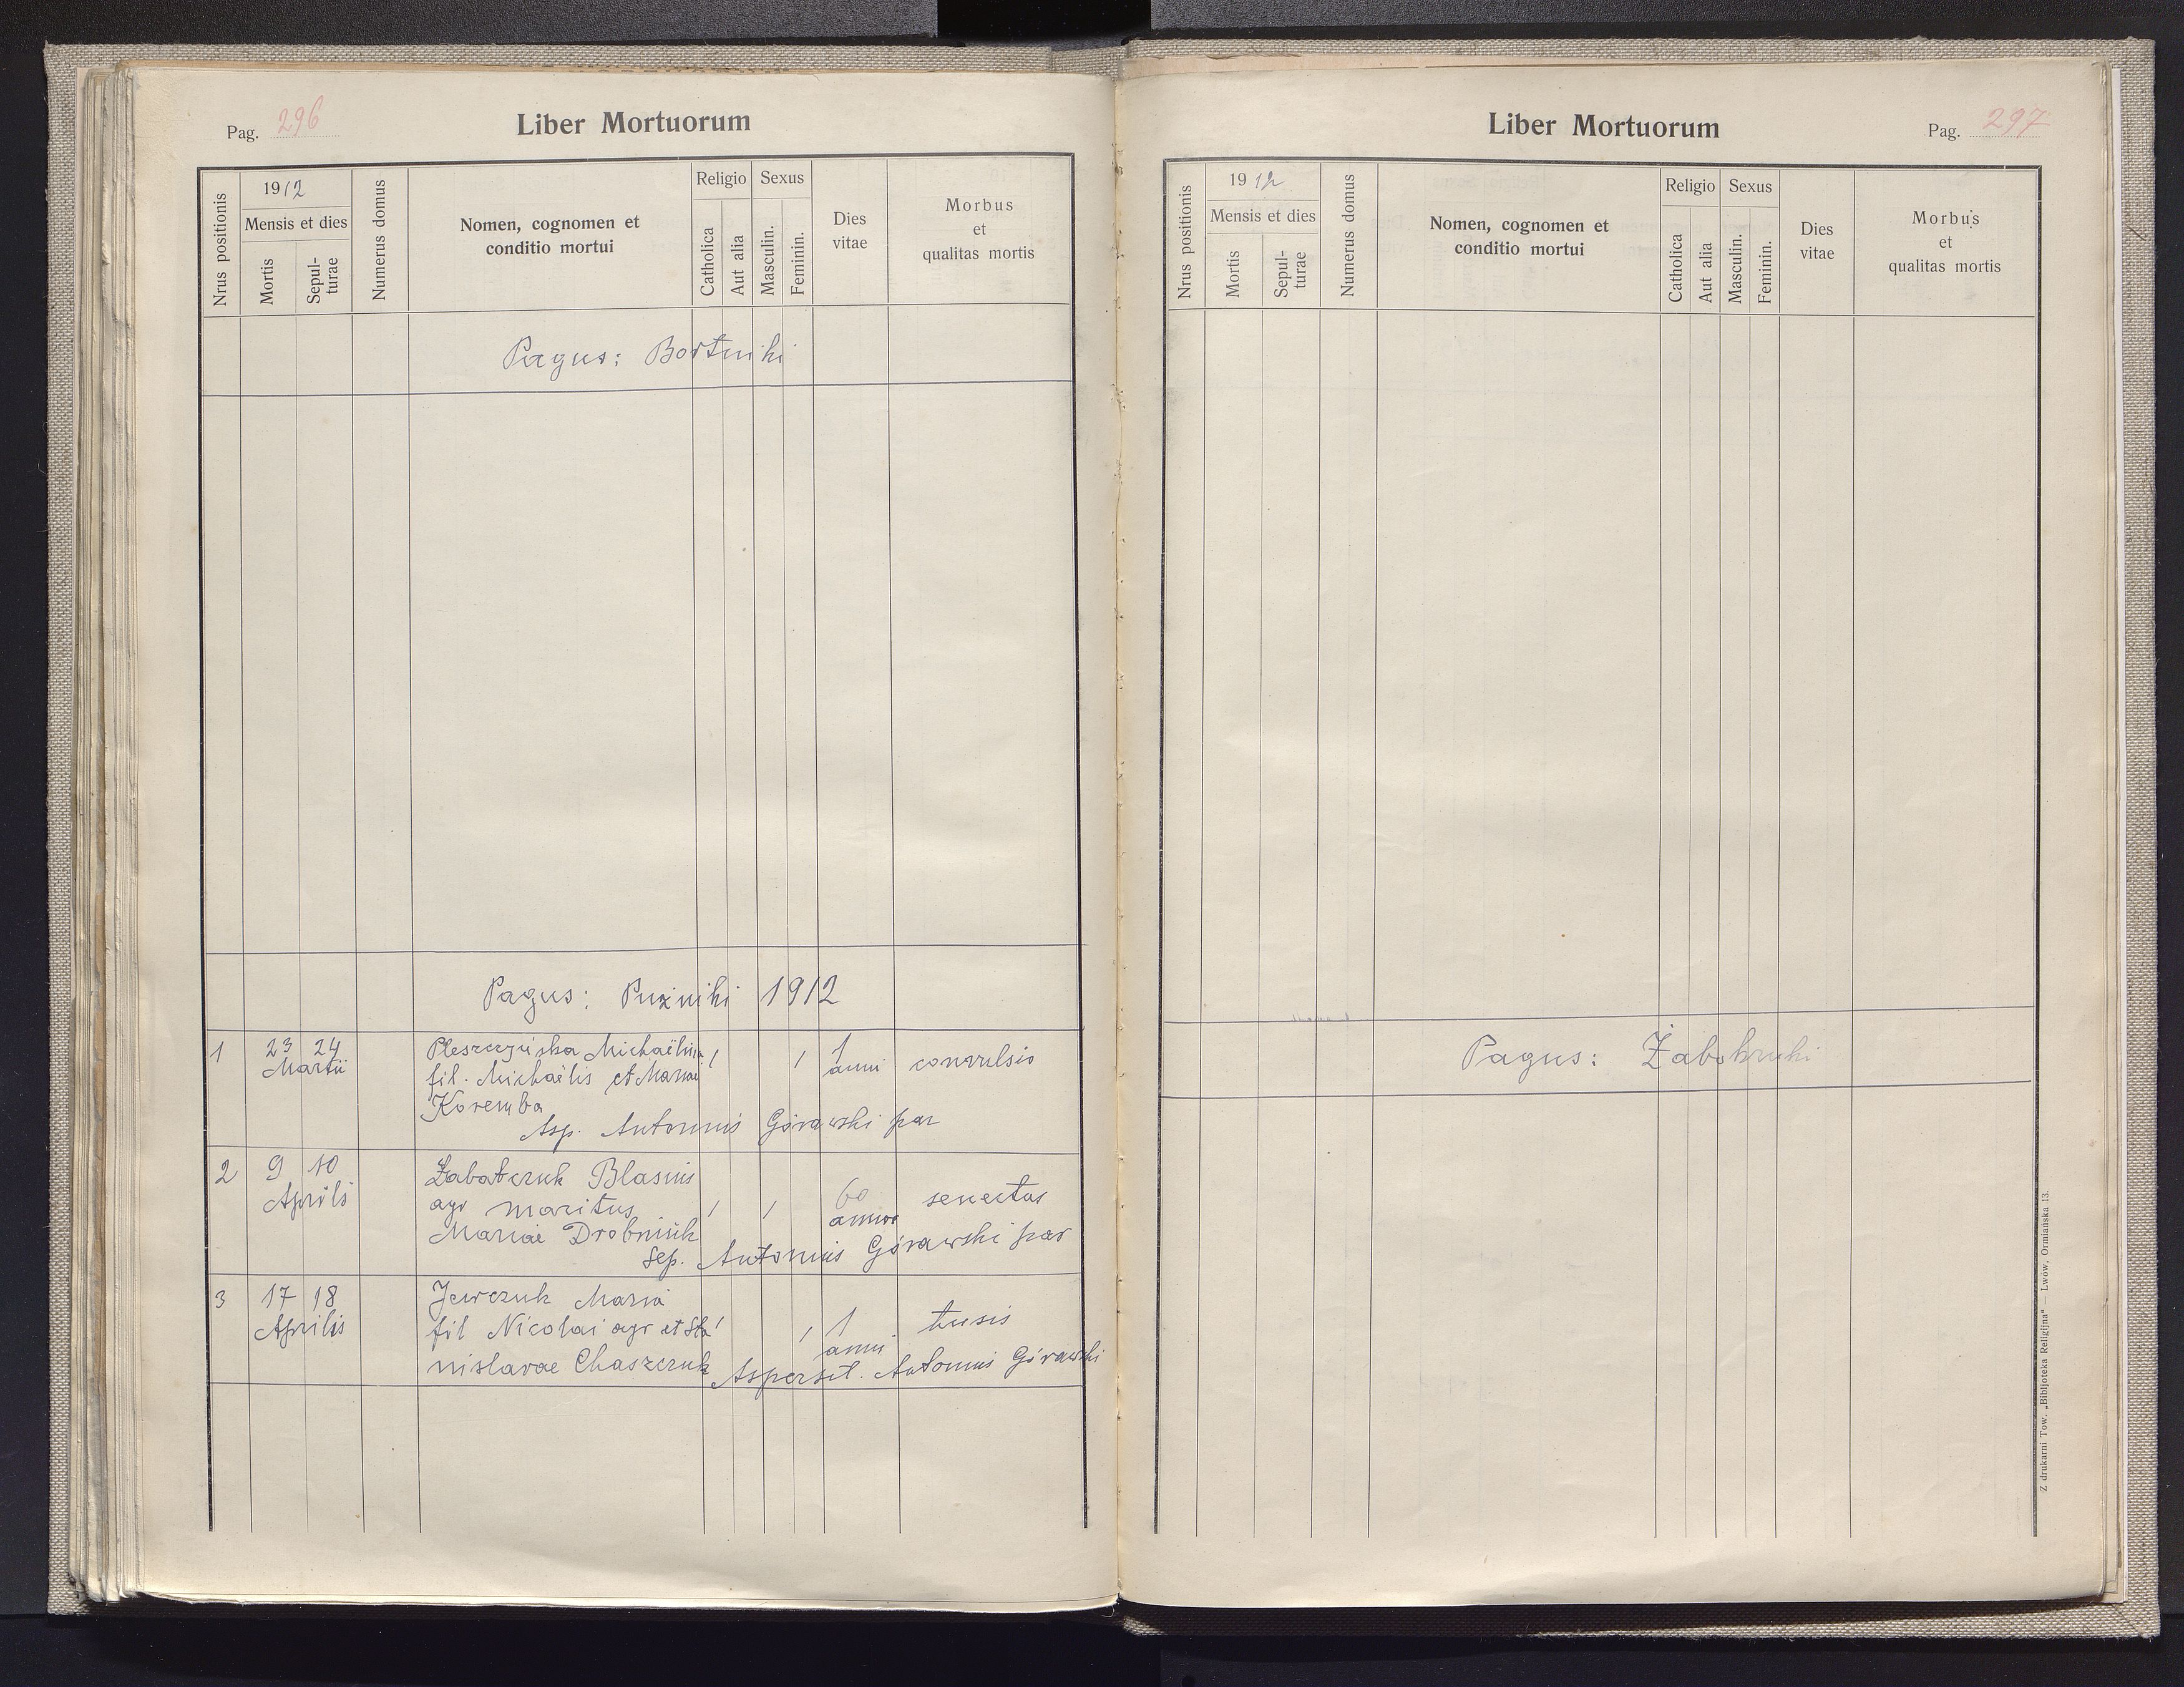 Pag. 296
Liber Mortuorum
Nrus positionis
1912
Mensis et dies
Mortis
Sepul-
turae
Numerus domus
Nomen, cognomen et
conditio mortui
Religio
Catholica
Aut alia
Sexus
Masculin.
Feminin.
Dies
vitae
Morbus
et
qualitas mortis
Pagus: Bortniki
Pagus: Puźniki 1912
1 23 24 Pleszczyńska Michaëlina / / 1 convulsio
Martii fil. Michaëlis et Mariae anni
Koremba
Asp. Antonius Górawski par
2 9 10 Zabatczuk Blasius
Aprilis agr maritus / / 60 senectus
Mariae Drobniuk annor
Sep. Antonius Górawski par
3 17 18 Jewczuk Maria
Aprilis fil Nicolai agr et Sta / / 1 tusis
nislavae Chaszczuk anni
Aspersit. Antonius Górawski
Liber Mortuorum
Pag. 297
Nrus positionis
1912
Mensis et dies
Mortis
Sepul-
turae
Numerus domus
Nomen, cognomen et
conditio mortui
Religio
Catholica
Aut alia
Sexus
Masculin.
Feminin.
Dies
vitae
Morbus
et
qualitas mortis
Pagus: Żabokruki
Z drukarni Tow. „Bibljoteka Religijna" — Lwów, Ormiańska 13.